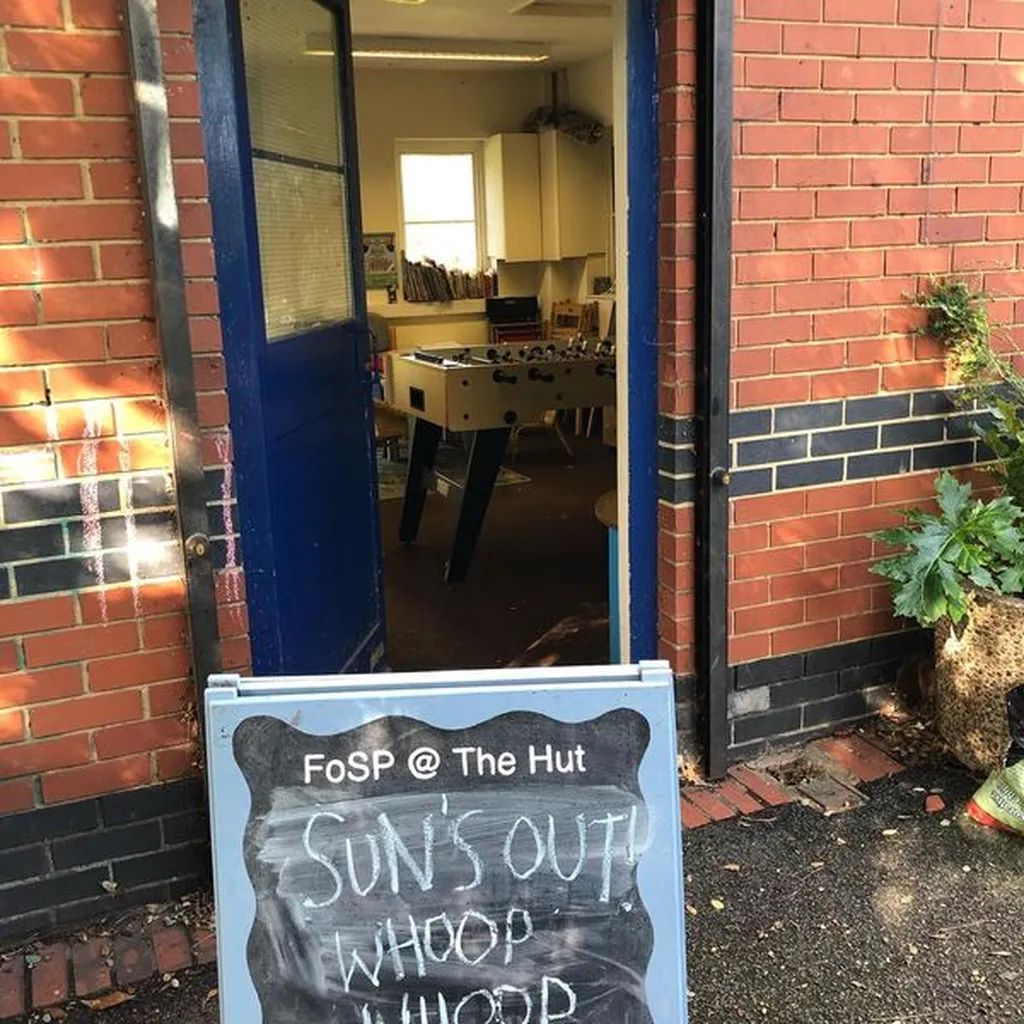 FoSP @ The Hut
SUN'S OUT!
WHOOP
WHOOP